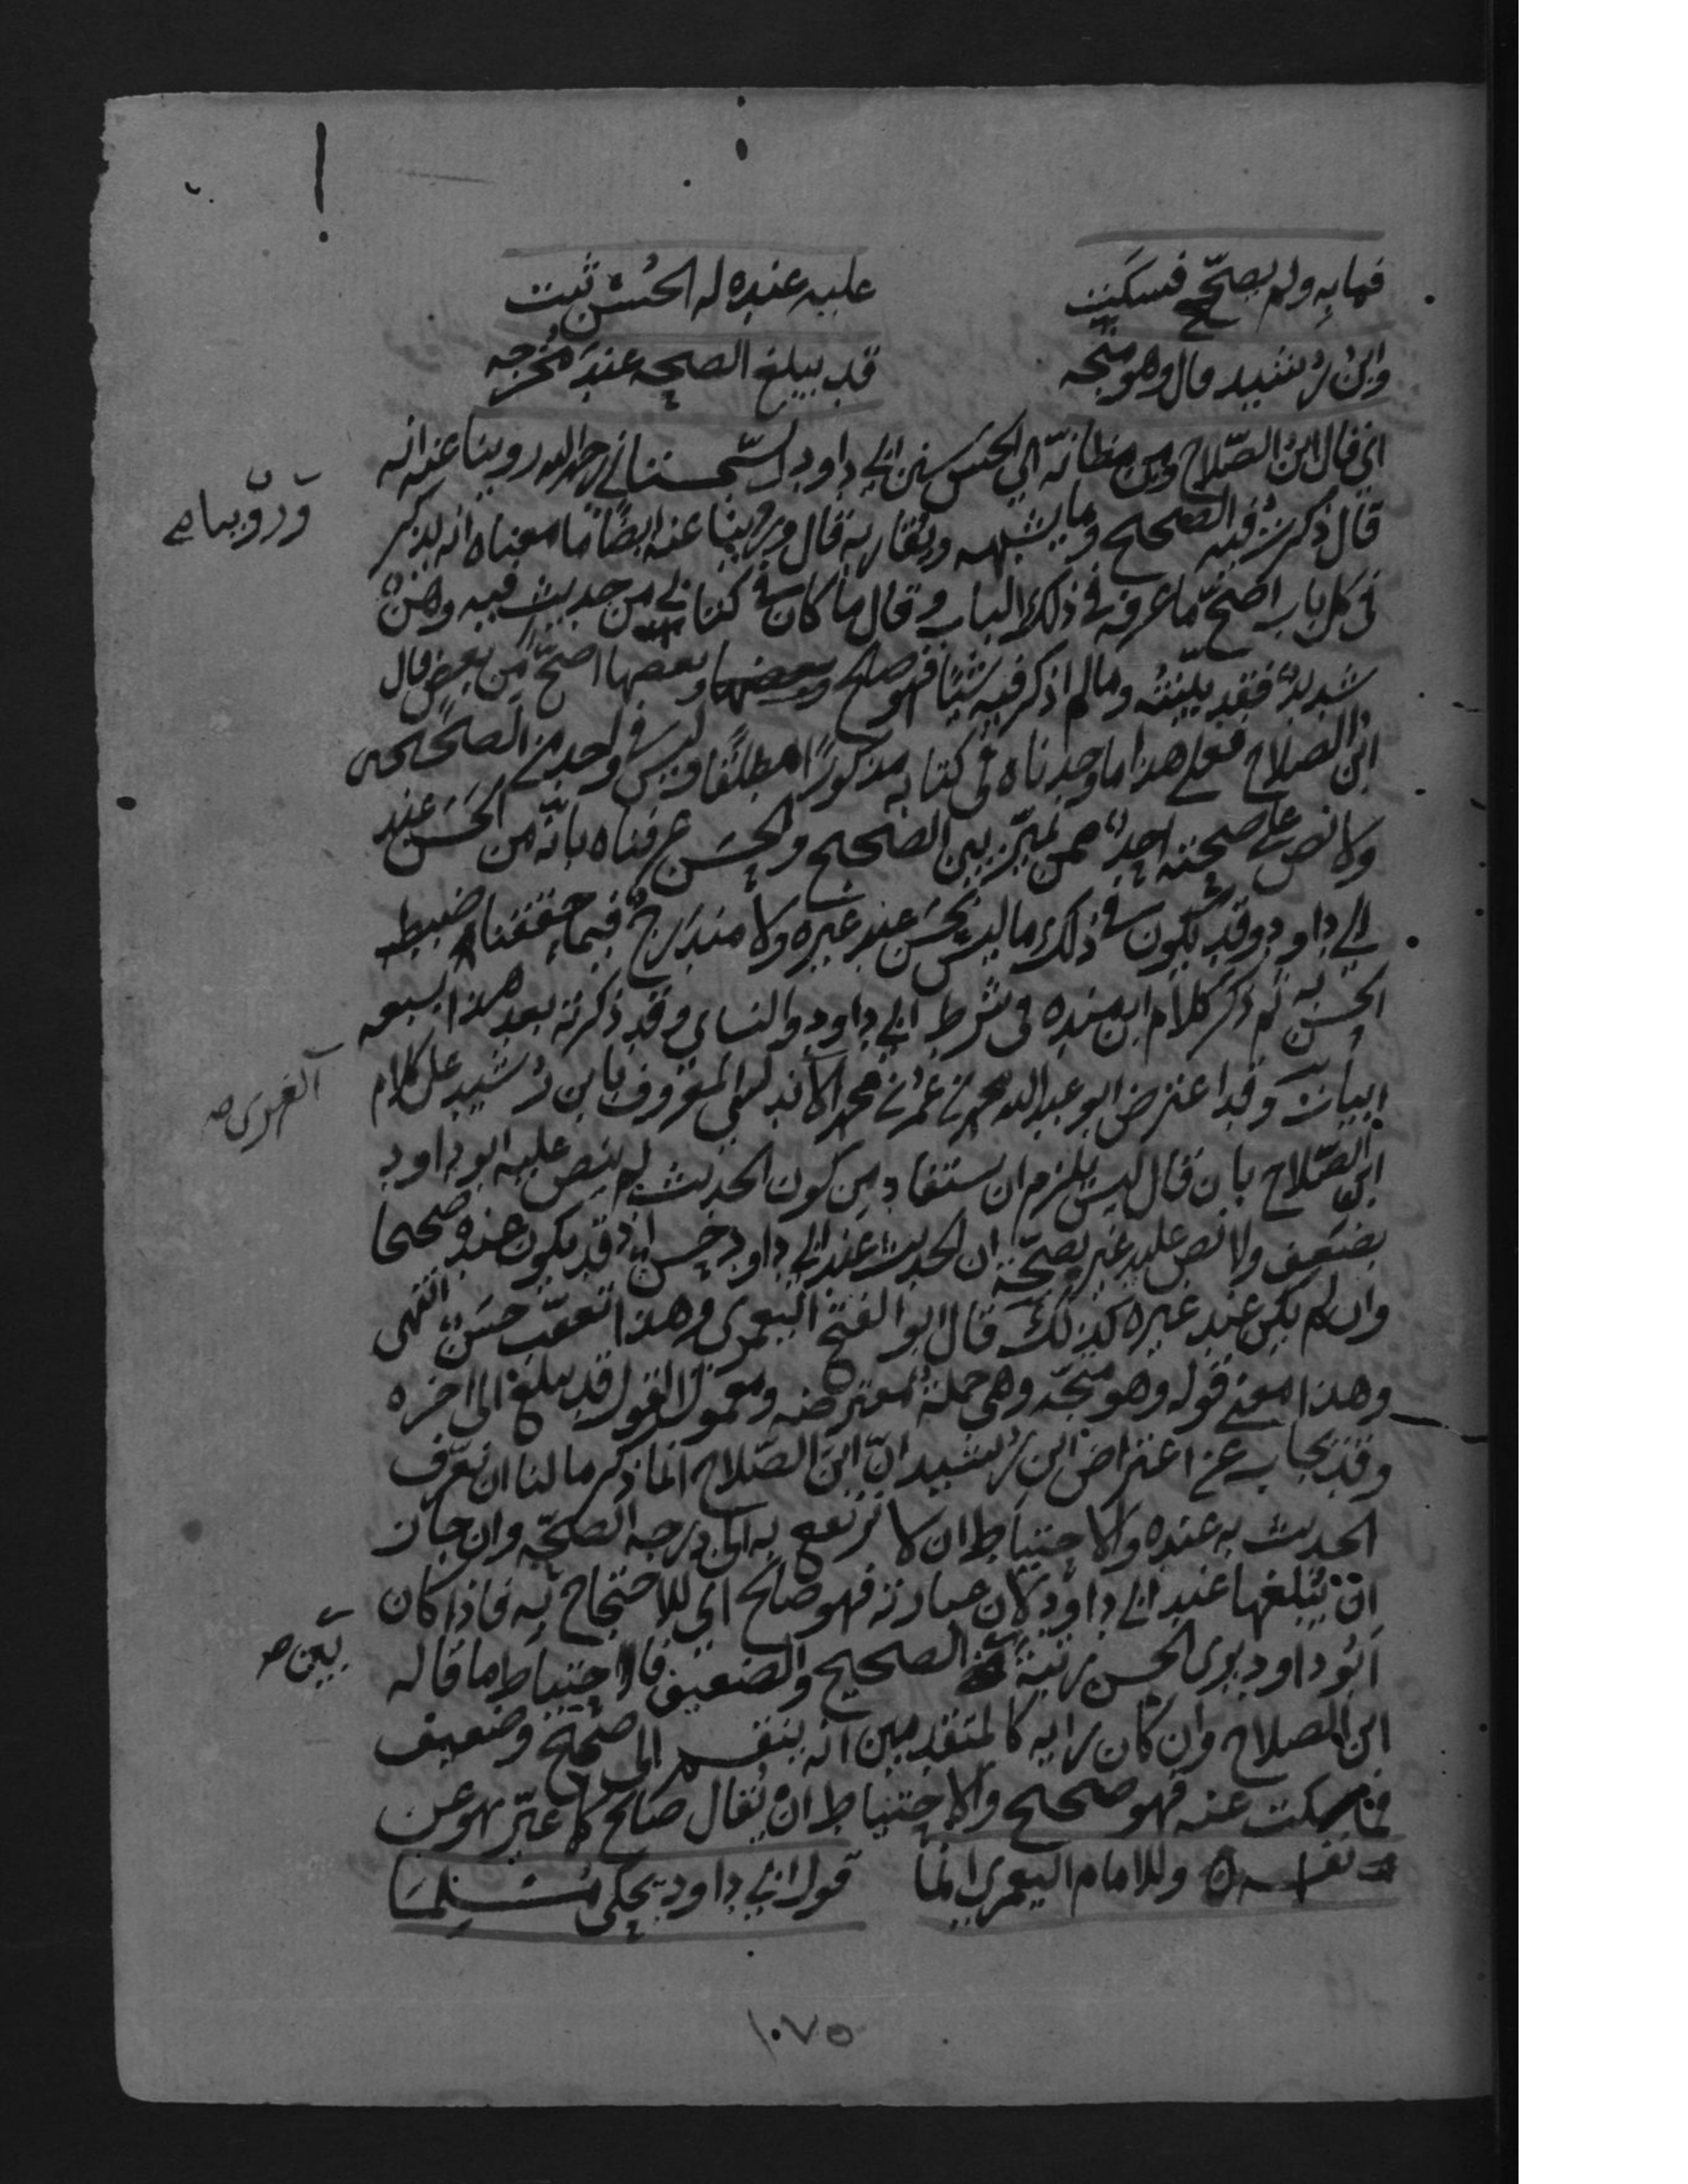 فما به ولم يصحح فسكت عليه عنده له الحسن ثبت
وابن رشيد قال وهو متجه قد يبلغ الصحة عند مخرجه
اي قال ابن الصلاح ومن مظانه اي الحسن سنن ابي داود السجستاني رحمه الله روينا عنه انه
قال ذكرت فيه الصحيح وما يشبهه ويقاربه قال وروينا عنه ايضا ما معناه انه يذكر
في كل باب اصح ما عرفه في ذلك الباب وقال ما كان في كتابي من حديث فيه وهن
شديد فقد بينته وما لم اذكر فيه شيئا فهو صالح وبعضها اصح من بعض قال
ابن الصلاح فعلى هذا ما وجدناه في كتابه مذكورا مطلقا وليس في واحد من الصحيحين
ولا نص على صحته احد ممن يميز بين الصحيح والحسن عرفناه بانه من الحسن عند
ابي داود وقد يكون في ذلك ما ليس بحسن عند غيره ولا مندرج فيما حققنا ضبط
الحسن به ثم ذكر كلام ابن منده في شرط ابي داود والنساي وقد ذكرته بعد هذا بسبعه
ابيات وقد اعترض ابو عبد الله محمد بن عمر بن محمد الاندلسي المعروف بابن رشيد على كلام
ابن الصلاح بان قال ليس يلزم ان يستفاد من كون الحديث لم ينص عليه ابو داود
بضعف ولا نص عليه غيره بصحة ان الحديث عند ابي داود حسن اذ قد يكون عنده صحيحا
وان لم يكن عند غيره كذلك قال ابو الفتح اليعمري وهذا تعقب حسن انتهى
وهذا معنى قوله وهو متجه وهي جملة معترضه ومعمول القول قد يبلغ الى اخره
وقد يجاب عن اعتراض ابن رشيد ان ابن الصلاح انما ذكر ما لنا ان نعرف
الحديث به عنده والاحتياط ان لا نرتفع به الى درجة الصحة وان جاز
ان يبلغها عند ابي داود لان عبارته فهو صالح اي للاحتجاج به فاذا كان
ابو داود يرى الحسن رتبة الصحيح والضعيف فالاحتياط ما قاله
ابن الصلاح وان كان رايه كالمتقدمين انه ينقسم الى صحيح وضعيف
فما سكت عنه فهو صحيح والاحتياط ان يقال صالح كما عبر هو عن
نفسه ه وللامام اليعمري انما قول ابي داود يحكي مسلما
ورويناه
الفهري صح
بين صح
١٠٧٥